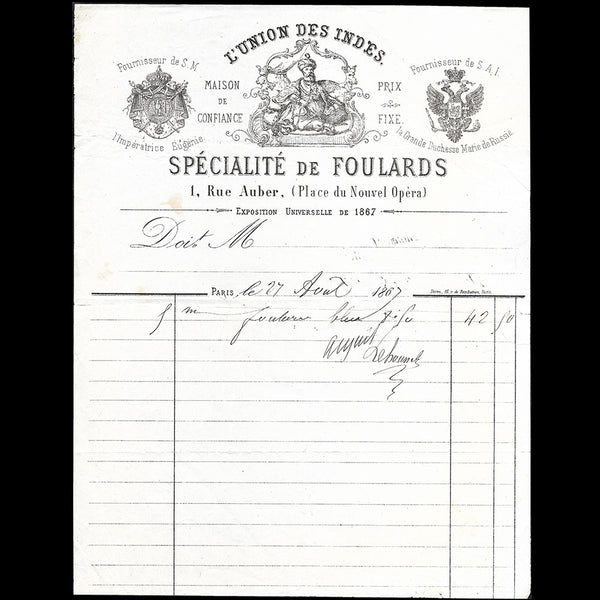 L'UNION DES INDES.
Fournisseur de S.M.
l'Impératrice Eugénie
MAISON
DE
CONFIANCE
PRIX
FIXE.
Fournisseur de S.A.I.
la Grande Duchesse Marie de Russie
SPÉCIALITÉ DE FOULARDS
1, Rue Auber, (Place du Nouvel Opéra)
EXPOSITION UNIVERSELLE DE 1867
Doit M
PARIS, le 27 Août 1867
5 m foulard bleu 42 50
acquit